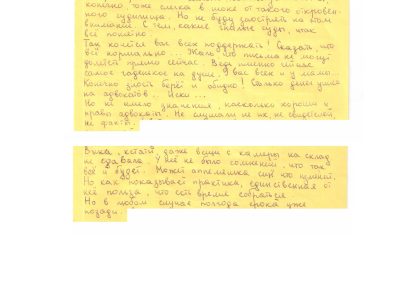 конечно, тоже слегка в шоке от такого откровен-
ного судилища. Но не буду заострять на этом
внимание. С тем, какие наши суды, итак
всё понятно.
Так хочется вас всех поддержать! Сказать, что
всё нормально... Жаль что письма не могут
долететь прямо сейчас. Ведь именно сейчас
самое гаденькое на душе. У вас всех и у мамы...
Конечно злость берёт и обидно! Сколько денег ушло
на адвокатов... Иски...
Но не имело значения, насколько хороши и
правы адвокаты. Не слушали ни их, ни свидетелей,
ни факты.
Вика, кстати даже вещи с камеры на склад
не сдавала. У неё не было сомнений, что так
всё и будет. Может апелляшка ещё что изменит.
Но как показывает практика, единственная от
неё польза, что есть время собраться.
Но в любом случае полгода срока уже
позади.